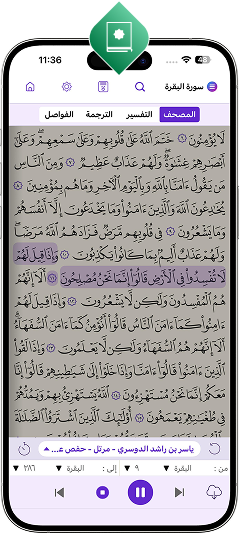 11:36
48
سورة البقرة
المصحف
التفسير
الترجمة
الفواصل
لَا يُؤْمِنُونَ ٦ خَتَمَ ٱللَّهُ عَلَىٰ قُلُوبِهِمْ وَعَلَىٰ سَمْعِهِمْ ۖ وَعَلَىٰٓ
أَبْصَٰرِهِمْ غِشَٰوَةٌ ۖ وَلَهُمْ عَذَابٌ عَظِيمٌ ٧ وَمِنَ ٱلنَّاسِ
مَن يَقُولُ ءَامَنَّا بِٱللَّهِ وَبِٱلْيَوْمِ ٱلْءَاخِرِ وَمَا هُم بِمُؤْمِنِينَ ٨
يُخَٰدِعُونَ ٱللَّهَ وَٱلَّذِينَ ءَامَنُوا۟ وَمَا يَخْدَعُونَ إِلَّآ أَنفُسَهُمْ
وَمَا يَشْعُرُونَ ٩ فِى قُلُوبِهِم مَّرَضٌ فَزَادَهُمُ ٱللَّهُ مَرَضًا ۖ
وَلَهُمْ عَذَابٌ أَلِيمٌۢ بِمَا كَانُوا۟ يَكْذِبُونَ ١٠ وَإِذَا قِيلَ لَهُمْ
لَا تُفْسِدُوا۟ فِى ٱلْأَرْضِ قَالُوٓا۟ إِنَّمَا نَحْنُ مُصْلِحُونَ ١١ أَلَآ إِنَّهُمْ
هُمُ ٱلْمُفْسِدُونَ وَلَٰكِن لَّا يَشْعُرُونَ ١٢ وَإِذَا قِيلَ لَهُمْ
ءَامِنُوا۟ كَمَآ ءَامَنَ ٱلنَّاسُ قَالُوٓا۟ أَنُؤْمِنُ كَمَآ ءَامَنَ ٱلسُّفَهَآءُ ۗ
أَلَآ إِنَّهُمْ هُمُ ٱلسُّفَهَآءُ وَلَٰكِن لَّا يَعْلَمُونَ ١٣ وَإِذَا لَقُوا۟
ٱلَّذِينَ ءَامَنُوا۟ قَالُوٓا۟ ءَامَنَّا وَإِذَا خَلَوْا۟ إِلَىٰ شَيَٰطِينِهِمْ قَالُوٓا۟ إِنَّا
مَعَكُمْ إِنَّمَا نَحْنُ مُسْتَهْزِءُونَ ١٤ ٱللَّهُ يَسْتَهْزِئُ بِهِمْ وَيَمُدُّهُمْ
فِى طُغْيَٰنِهِمْ يَعْمَهُونَ ١٥ أُو۟لَٰٓئِكَ ٱلَّذِينَ ٱشْتَرَوُا۟ ٱلضَّلَٰلَةَ
ياسر بن راشد الدوسري - مرتل - حفص ع...
من : البقرة ٩ إلى : البقرة ٢٨٦